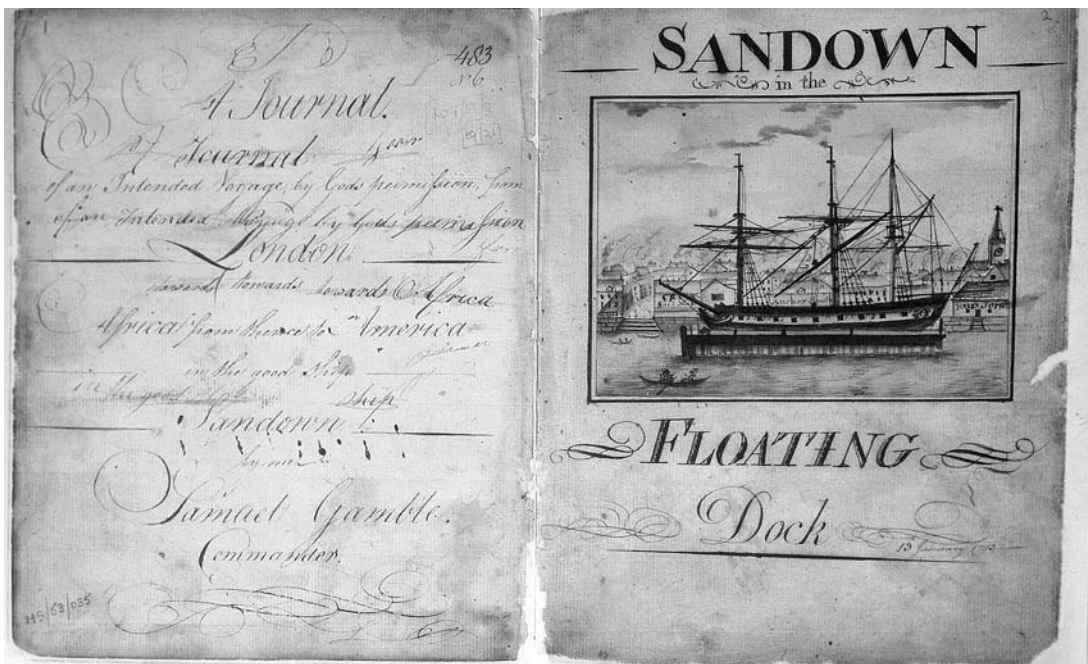 1
483
No 6
A Journal.
A Journal
of an Intended Voyage, by Gods permission, from
of an Intended Voyage by Gods permission
London
towards towards towards Africa
Africa from thence to America
in the good Ship
in the good Ship ship
Sandown
by me
Samuel Gamble.
Commander.
MS/53/035
2
SANDOWN
in the
FLOATING
Dock
13 January